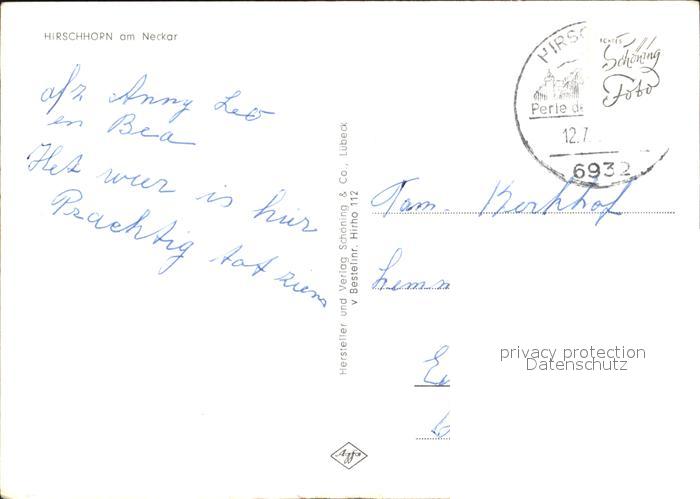 HIRSCHHORN am Neckar
afz Anny Leo
en Bea
Het weer is hier
Prachtig tot ziens
Hersteller und Verlag Schöning & Co., Lübeck
v Bestellnr. Hirho 112
HIRSC
Perle de
12.7.
6932
ECHTES
Schöning
Foto
Fam. Kerkhof
privacy protection
Datenschutz
Agfa